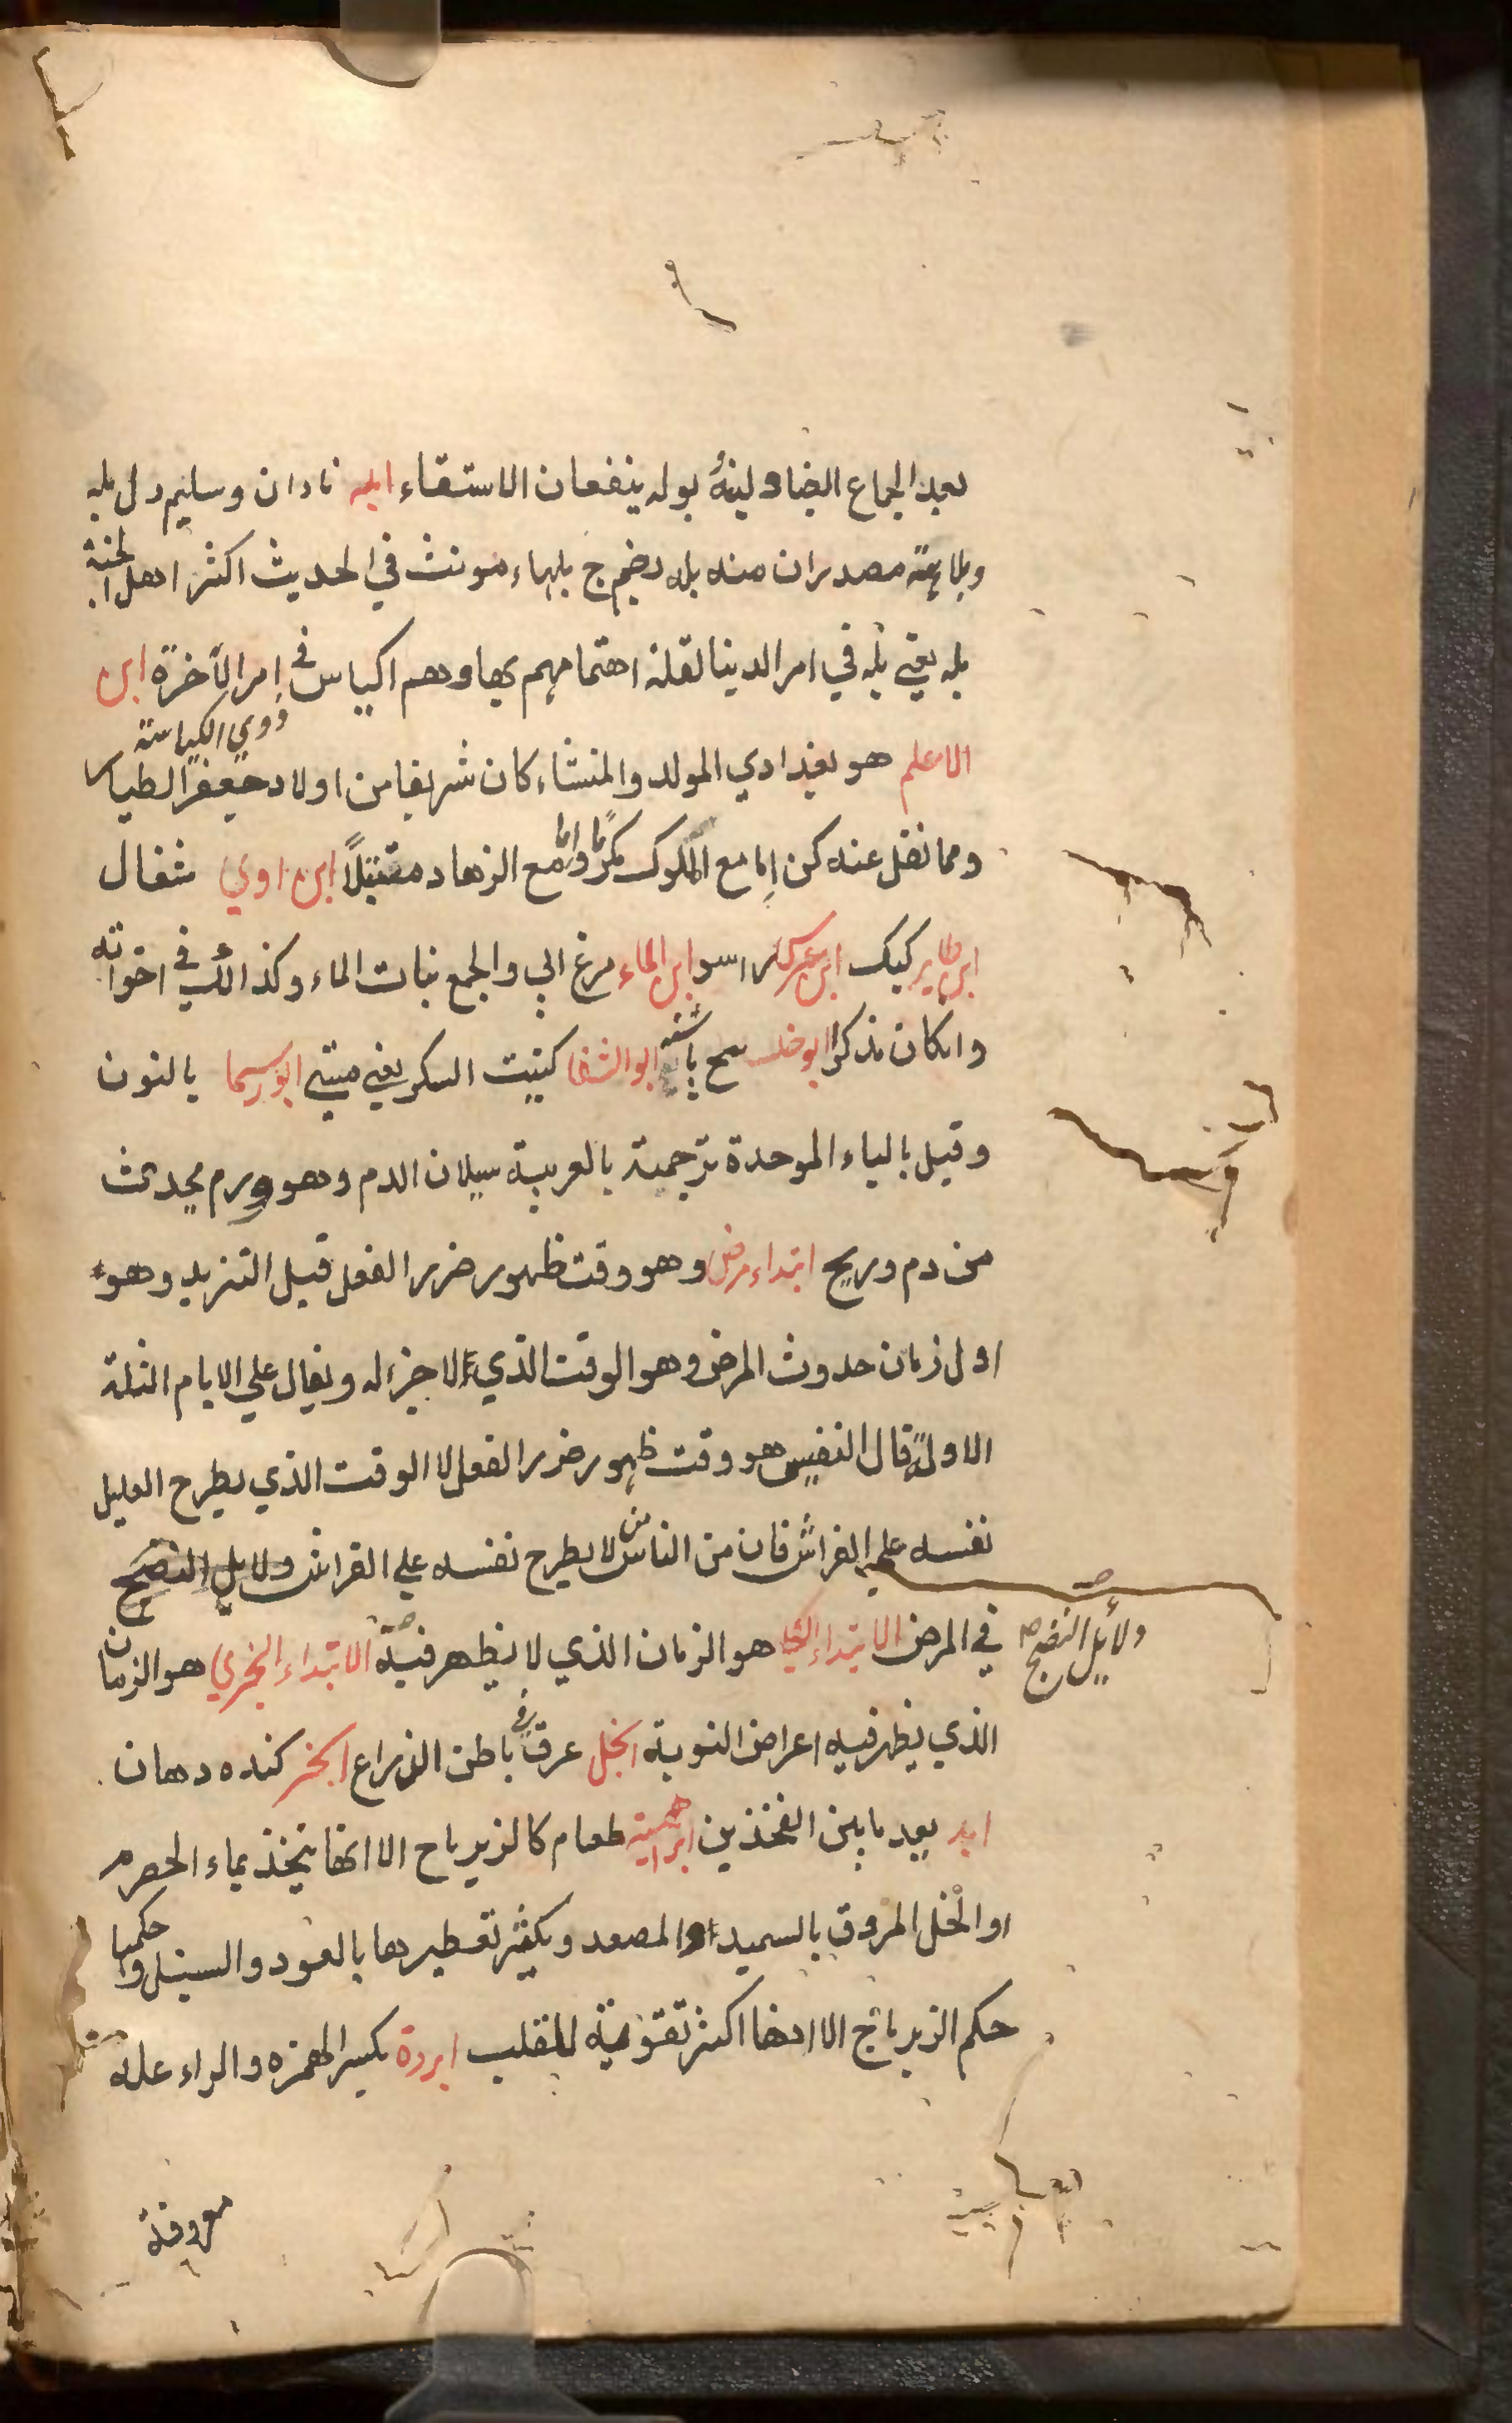 بعد الجماع ايضا ولبنهُ بوله ينفعان الاستسقاء ابله نادان وسليم دل بله
وبلاهة مصدران منه بله بضم ج بلهاء مونث في الحديث اكثر اهل الجنة
بله يعني بُله في امر الدينا لقلة اهتمامهم بها وهم اكياس في امر الآخرة ابن
ذوي الكياسة
الاعلم هو بغدادي المولد والمنشاء كان شريفا من اولاد جعفر الطيار
ومما نقل عنه كن اما مع الملوك مكرمًا واما مع الزهاد متبتلاً ابن اوي شغال
ابن طاير كيك ابن عرس راسو ابن الماء مرغ ابي والجمع بنات الماء وكذالك في اخواته
وانكان مذكرا ابو خلسا باشد ابو الشفا كنيت السكر يعني ابورسما بالنون
وقيل بالياء الموحدة ترجمة بالعربية سيلان الدم وهو ورم يحدث
من دم وريح ابتداء مرض وهو وقت ظهور ضرر الفعل قبل التزيد وهو
اول زمان حدوث المرض وهو الوقت الذي لا جزء له ويقال علي الايام الثلثة
الاولة قال النفيس هو وقت ظهور ضرر الفعل لا الوقت الذي يطرح العليل
نفسه علي الفراش فان من الناس من لا يطرح نفسه علي الفراش ولايل النضج
دلايل النضج صح
في المرض الابتداء الكلي هو الزمان الذي لا يظهر فيه الابتداء الجزي هو الزمان
الذي يظهر فيه اعراض النوبة ابجل عرق في باطن الذراع ابخر كنده دهان
ابد بعد ما بين الفخذين ابراهمية طعام كالزيرباج الا انها يتخذ بماء الحصرم
او الخل المروق بالسميد او المصعد ويكثر تعطيرها بالعود والسنبل وحكمها
حكم الزيرباج الا انها اكثر تقوية للقلب ابردة بكسر الهمزه والراء علة
معروفة